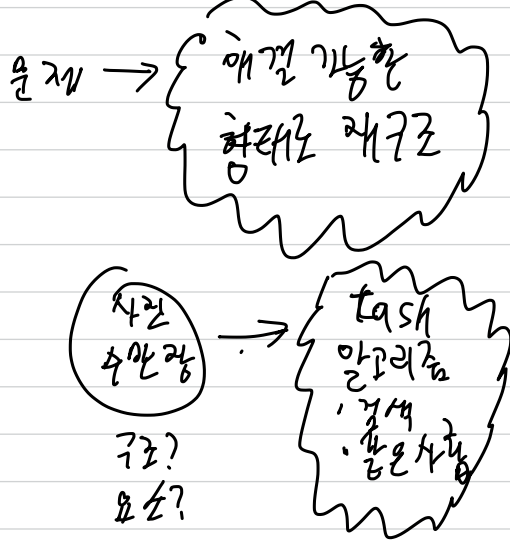 문제 → 해결 가능한
형태로 재구조
사진
수만장
→
task
알고리즘
· 검색
· 같은사람
구조?
요소?